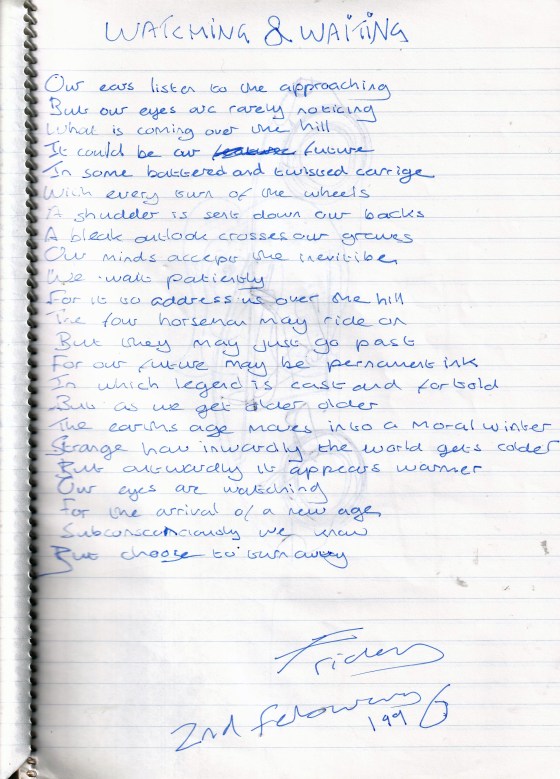 WATCHING & WAITING
Our ears listen to the approaching
But our eyes are rarely noticing
What is coming over the hill
It could be our future
In some battered and twisted carrige
With every turn of the wheels
A shudder is sent down our backs
A bleak outlook crosses our graves
Our minds accept the inevitiber
We wait patiently
For it to address us over the hill
The four horseman may ride on
But they may just go past
For our future may be permanent ink
In which legend is cast and fortold
But as we get older older
The earths age moves into a moral winter
Strange how inwardly the world gets colder
But outwardly it appears warmer
Our eyes are watching
For the arrival of a new age,
Subconsciously we know
But choose to turn away
Friday
2nd February
1996